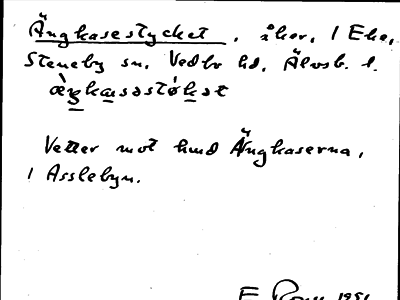 Ängkasestycket, åker, 1 Eke,
Steneby sn. Vedbo hd. Älvsb. l.
æŋkasəstøkət
Vetter mot hmd Ängkaserna,
i Asslebyn.
E 1951